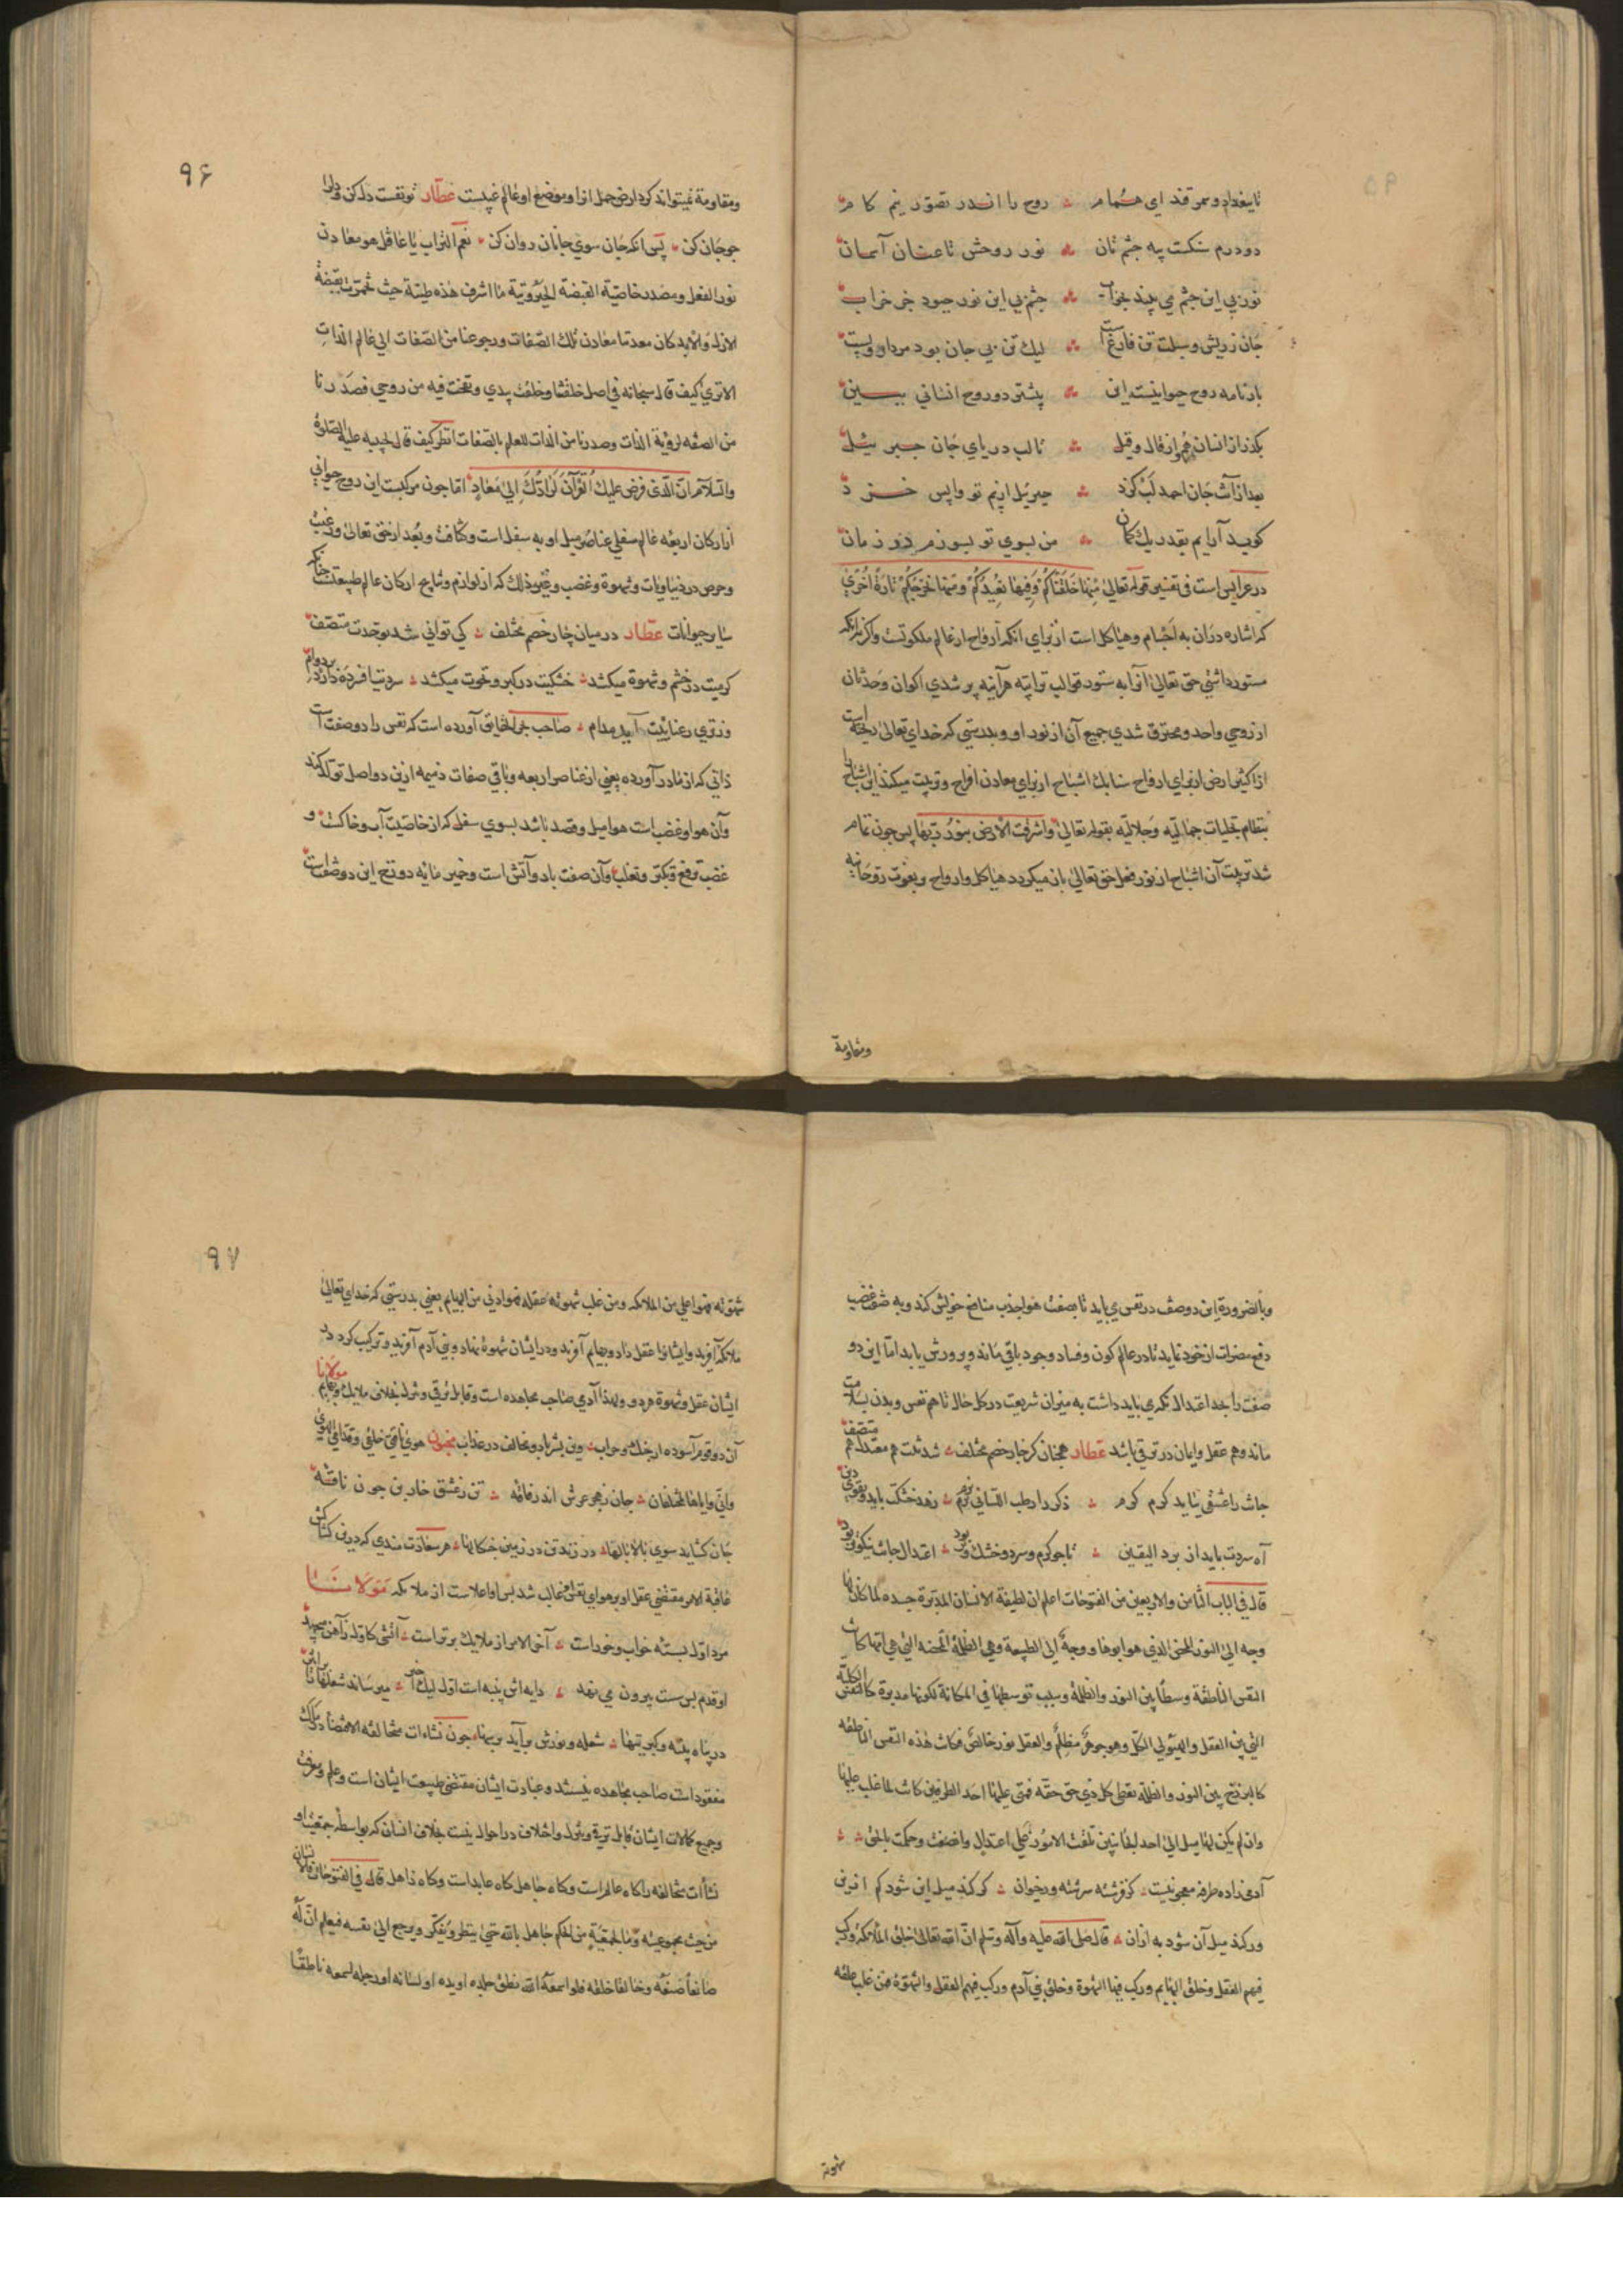 تا ببغداد و سمرقند ای همام روح را اندر تصور نیم کام
دو درم سنکست پیه چشم تان نور روحش تا عنان آسمان
نور بی این چشم می بیند بخواب چشم بی این نور چبود جز خراب
جان ز ریش و سبلت تن فارغ است لیک تن بی جان بود مردار و پست
بارنامه روح حیوانیست این پیشتر رو روح انسانی ببین
بکذر از انسان هم و از قال و قیل تا لب دریای جان جبرئیل
بعد از آنت جان احمد لب کزد جبرئیل از بیم تو واپس خزد
کوید ار آیم بقدر یک کمان من بسوی تو بسوزم در زمان
در عرایس است فی تفسیر قوله تعالی منها خلقناکم و فیها نعیدکم و منها نخرجکم تارة اخری
که اشاره در آن به اجسام و هیاکل است از برای انکه ارواح از عالم ملکوتست و کرنه انکه
مستور داشتی حق تعالی آنرا به ستور قوالب ترابیه هرآینه پر شدی اکوان و حدثان
از روحی واحد و محترق شدی جمیع آن از نور او و بدرستی که خدای تعالی ریخته است
از اکثیر ارض از برای ارواح سبایک اشباح از برای معادن افراح و تربیت میکند این اشباح را
بنظام تجلیات جمالیه و جلالیه بقوله تعالی و اشرقت الارض بنور ربها پس چون تمام
شد تربیت آن اشباح از نور فعل حق تعالی باز میکردد هیاکل و ارواح و بقوت روحانیه
ومقاومة
۹۶
ومقاومة نمیتواند کرد ارض حمل انرا و موضع او عالم غیبست عطار تو نفست دل کن و دلرا
جو جان کن پس انکه جان سوی جانان روان کن نعم التراب یا عاقل هو معادن
نور الفعل و مصدر خاصیة القبضة الجبروتیة ما اشرف هذه طینة حیث خمرت بقبضة
الازل والابد کان معدننا معادن تلک الصفات ورجوعنا من الصفات الی عالم الذات
الاتری کیف قال سبحانه فی اصل خلقنا و خلقت بیدی ونفخت فیه من روحی فصدرنا
من الصفه لرؤیة الذات وصدرنا من الذات للعلم بالصفات انظر کیف قال لحبیبه علیه الصلوة
والسلام ان الذی فرض علیک القرآن لرادک الی معاد اما چون مرکبست این روح حیوانی
از ارکان اربعه عالم سفلی عناصر میل او به سفل است و کثافت و بعد از حق تعالی و رغبت
و حرص در دنیاویات و شهوة و غضب و غیر ذلک که از لوازم و نتایج ارکان عالم طبیعتست چنانکه
سایر حیوانات عطار در میان چار خصم مختلف کی توانی شد بوحدت متصف
کرمیت در خشم و شهوة میکشد خشکیت در کبر و نخوت میکشد سردیت افسرده دارد بر دوام
وز تری رعناییت آید مدام صاحب بحر الحقایق آورده است که نفس را دو صفت است
ذاتی که از مادر آورده یعنی از عناصر اربعه و باقی صفات ذمیمه ازین دو اصل تولد کند
و آن هوا و غضب است هوا میل و قصد باشد بسوی سفل که از خاصیت آب و خاکست و
غضب ترفع و تکبر و تغلب و آن صفت باد و آتش است و خمیر مایه دوزخ این دو صفت است
وبالضرورة این دو صفت در نفس می باید تا بصفت هوا جذب منافع خویش کند و به صفت غضب
دفع مضرات از خود نماید تا در عالم کون و فساد وجود باقی ماند و پرورش یابد اما این دو
صفت را بحد اعتدال نکه می باید داشت به میزان شریعت در کل حال تا هم نفس و بدن بسلامت
ماند و هم عقل و ایمان در ترقی باشد عطار همچنان کز چار خصم مختلف شد تنت هم معتدل هم متصف
جانت را عشقی بباید کرم کرم ذکر را رطب اللسانی نرم نرم زهد خشکت باید و تقوی دین
آه سردت باید از برد الیقین تا چو کرم و سرد و خشک و تر بود اعتدال جانت نیکوتر بود
قال فی الباب الثامن والاربعین من الفتوحات اعلم ان لطیفة الانسان المدبرة جسده لما کان لها
وجه الی النور المحض الذی هو ابوها و وجه الی الطبیعة وهی الظلمة المحضة التی هی امها کانت
النفس الناطقة وسطا بین النور والظلمة وسبب توسطها فی المکانة لکونها مدبرة کالنفس الکلیة
التی بین العقل والهیولی الکل وهو جوهر مظلم والعقل نور خالص فکانت هذه النفس الناطقة
کالبرزخ بین النور والظلمة تعطی کل ذی حق حقه فمتی علیها احد الطرفین کانت لما غلب علیها
وان لم یکن لها میل الی احد الجانبین تلقت الامور علی اعتدال وانصفت وحکمت بالحق
آدمی زاده طرفه معجونیست کز فرشته سرشته و ز حیوان کر کند میل این شود کم ازین
ور کند میل آن شود به از آن قال صلی الله علیه وآله وسلم ان الله تعالی خلق الملائکة ورکب
فیهم العقل وخلق البهایم ورکب فیها الشهوة وخلق بنی آدم ورکب فیهم العقل والشهوة فمن غلب عقله
شهوته
۹۷
شهوته فهو اعلی من الملائکه ومن غلب شهوته عقله فهو ادنی من البهایم یعنی بدرستی که خدای تعالی
ملائکه آفرید و ایشانرا عقل داد و بهایم آفرید و در ایشان شهوة نهاد و بنی آدم آفرید و ترکیب کرد در
ایشان عقل و شهوة هر دو و لهذا آدمی صاحب مجاهده است و قابل ترقی و تنزل بخلاف ملایک و بهایم مولانا
آن دو قوم آسوده از جنک و حراب وین بشر با دو مخالف در عذاب مجنون هوی ناقتی خلفی وقدامی الهوی
وانی وایاها لمختلفان جان ز هجر عرش اندر فاقه تن ز عشق خاربن چون ناقه
جان کشاید سوی بالا بالها در زند تن در زمین چنکالها هر سعادت مندی که درین کشاکش
عاقبة الامر مقتضی عقل او بر هوای نفس غالب شد پس او اعلاست از ملائکه مولانا
مرد اول بسته خواب و خور است آخر الامر از ملایک برتر است آتشی کاول ز آهن می جهد
او قدم بس سست بیرون می نهد دایه اش پنبه است اول لیک آخر میرساند شعلها تا اثیر
در پناه پنبه و کبریتها شعله و نورش برآید بر سها چون نشاءات مخالفه الاقتضا در ملک
مفقود است صاحب مجاهده نیستند و عبادت ایشان مقتضی طبیعت ایشان است و علم و معرفت
و جمیع کمالات ایشان قابل ترقی و تنزل و اختلاف در احوال نیست بخلاف انسان که بواسطه جمعیت او
نشأات مخالفه را کاه عالم است و کاه جاهل کاه عابد است و کاه ذاهل قال فی الفتوحات فالانسان
من حیث مجموعیته وما بجمعیته من الحکم جاهل بالله حتی ینظر ویفکر ویرجع الی نفسه فیعلم ان له
صانعا صنعه وخالقا خلقه فلو اسمعه الله نطق جلده او یده او لسانه او رجله لسمعه ناطقا